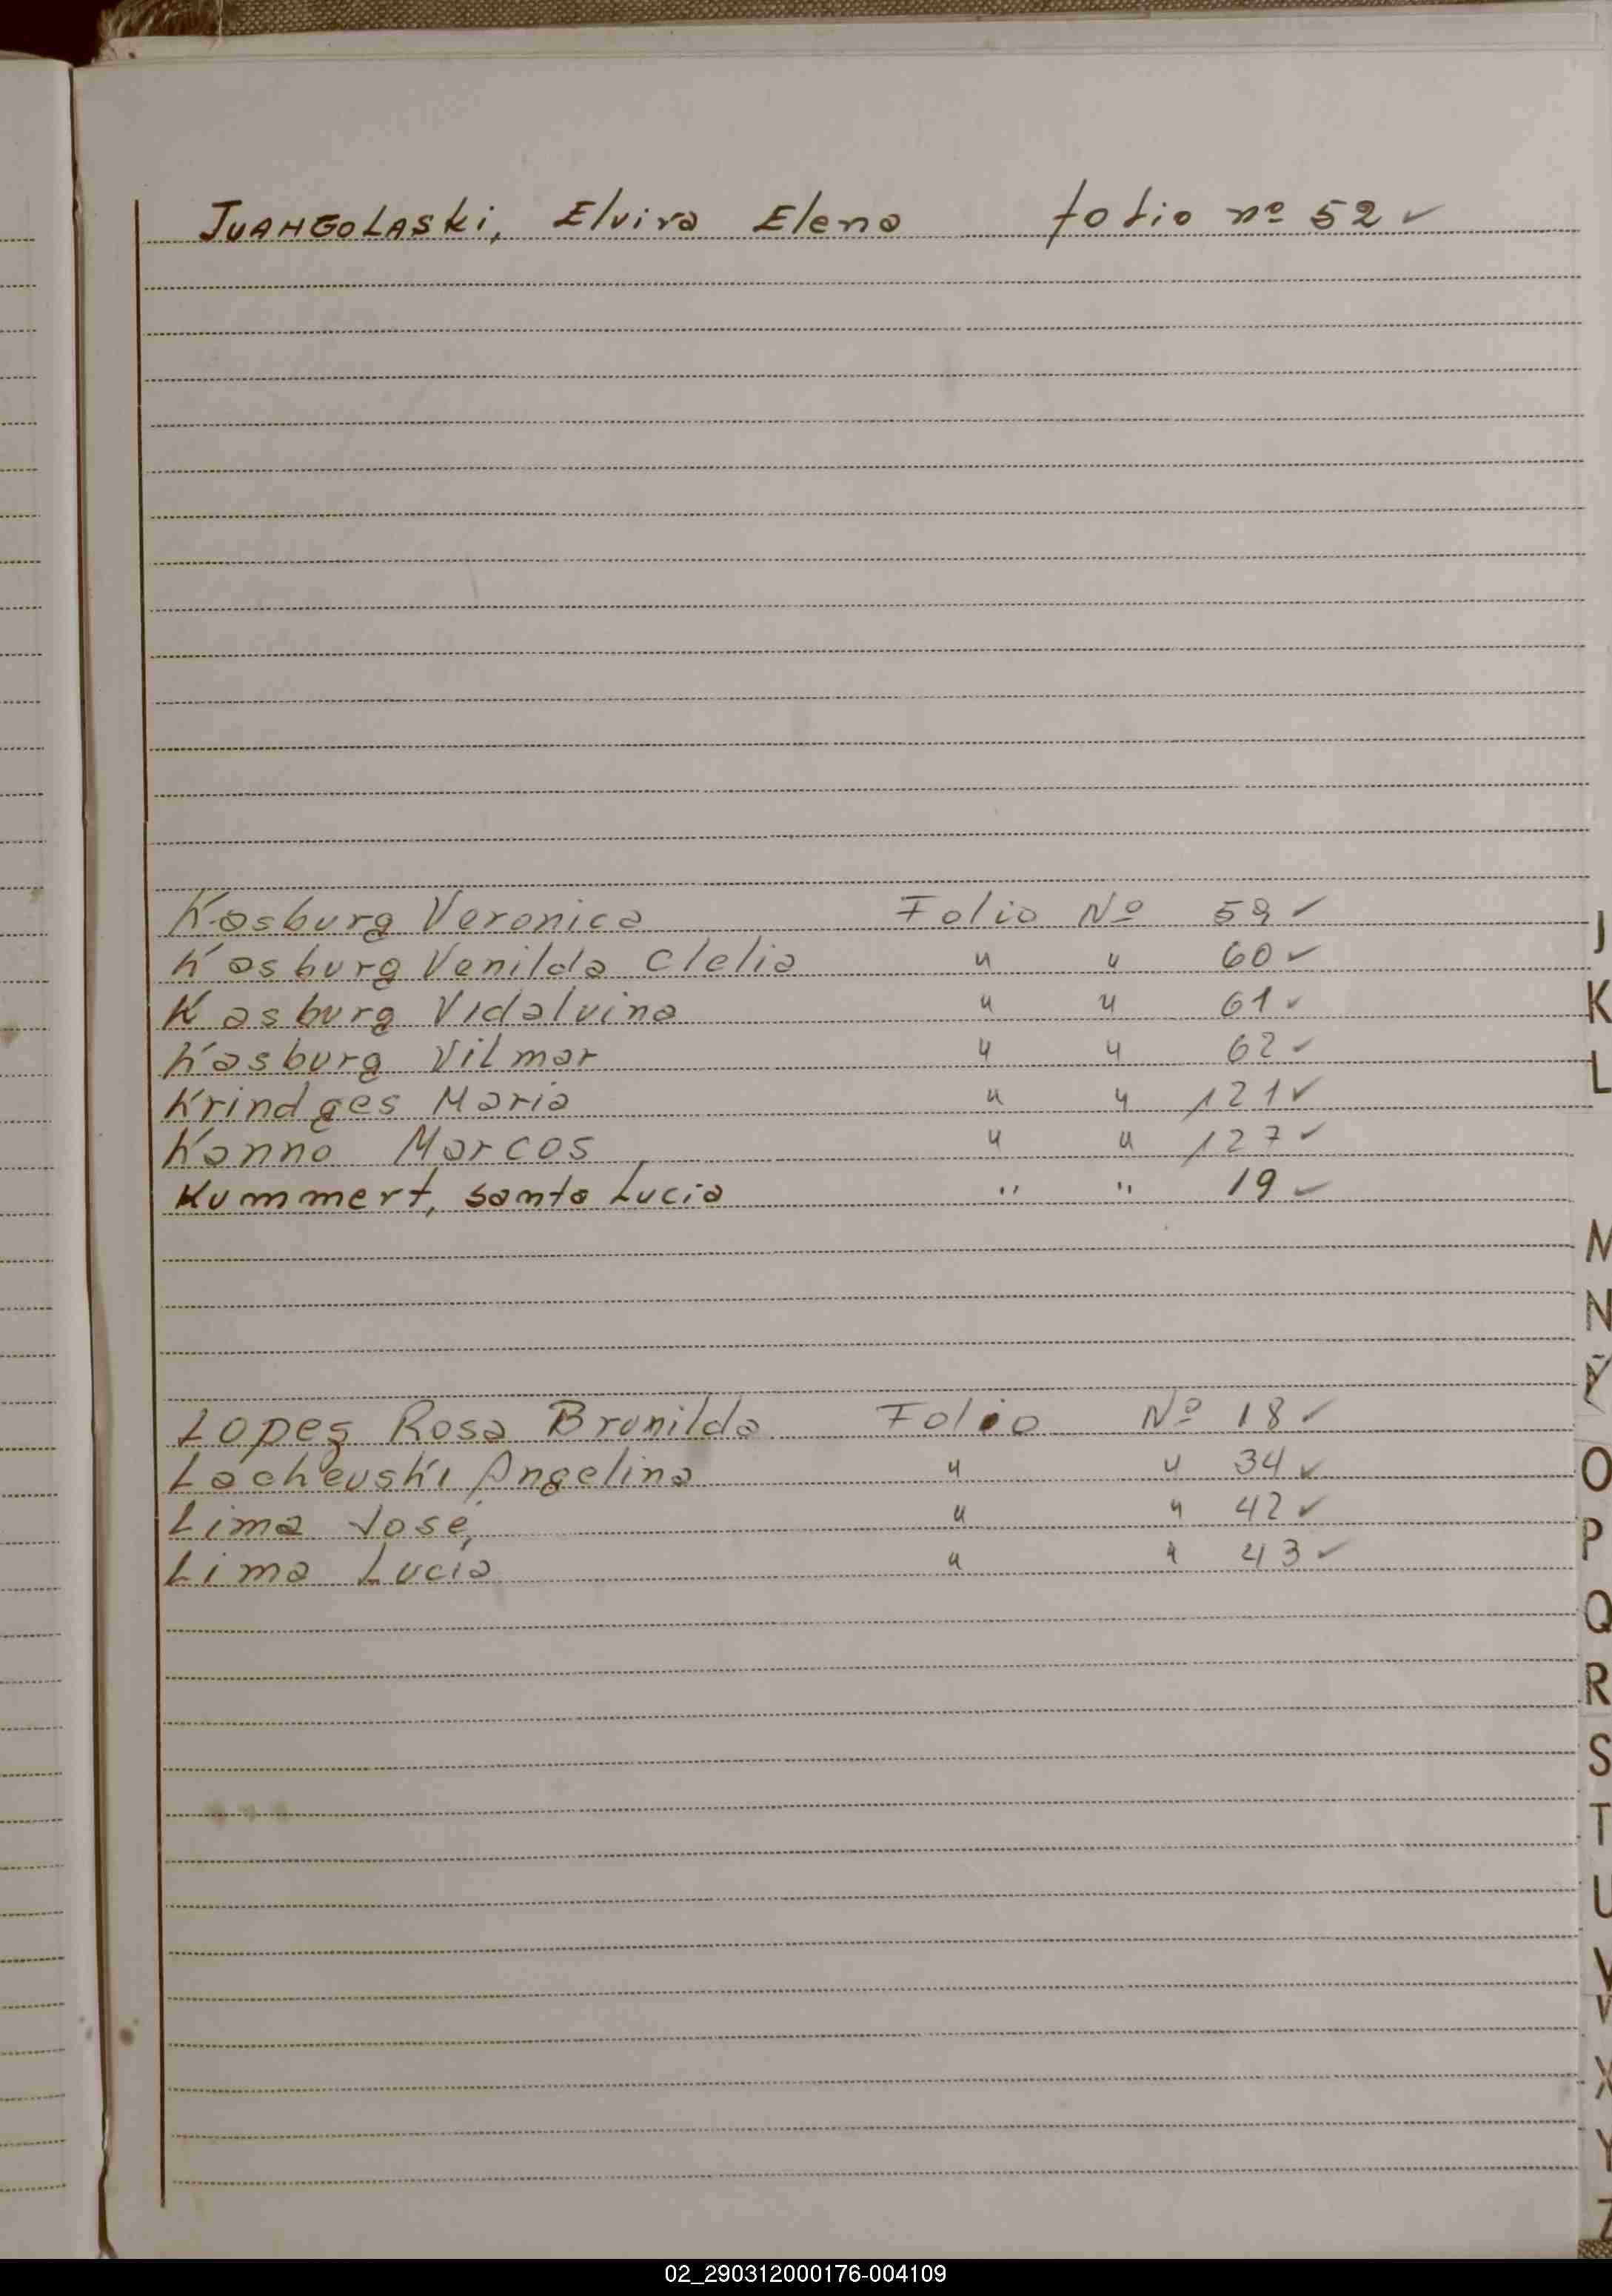 JUANGOLASKi, Elvira Elena folio nº 52 ✓
Kasburg Veronica Folio Nº 59 ✓
Kasburg Venilda Clelia " " 60 ✓
Kasburg Vidalvina " " 61 ✓
Kasburg Vilmar " " 62 ✓
Krindges Maria " " 121 ✓
Kanno Marcos " " 127 ✓
Kummert, Santa Lucia " " 19 ✓
Lopes Rosa Brunilda Folio Nº 18 ✓
Lachevski Angelina " " 34 ✓
Lima José " " 42 ✓
Lima Lucia " " 43 ✓
J
K
L
M
N
Ñ
O
P
Q
R
S
T
U
V
W
X
Y
Z
02_290312000176-004109